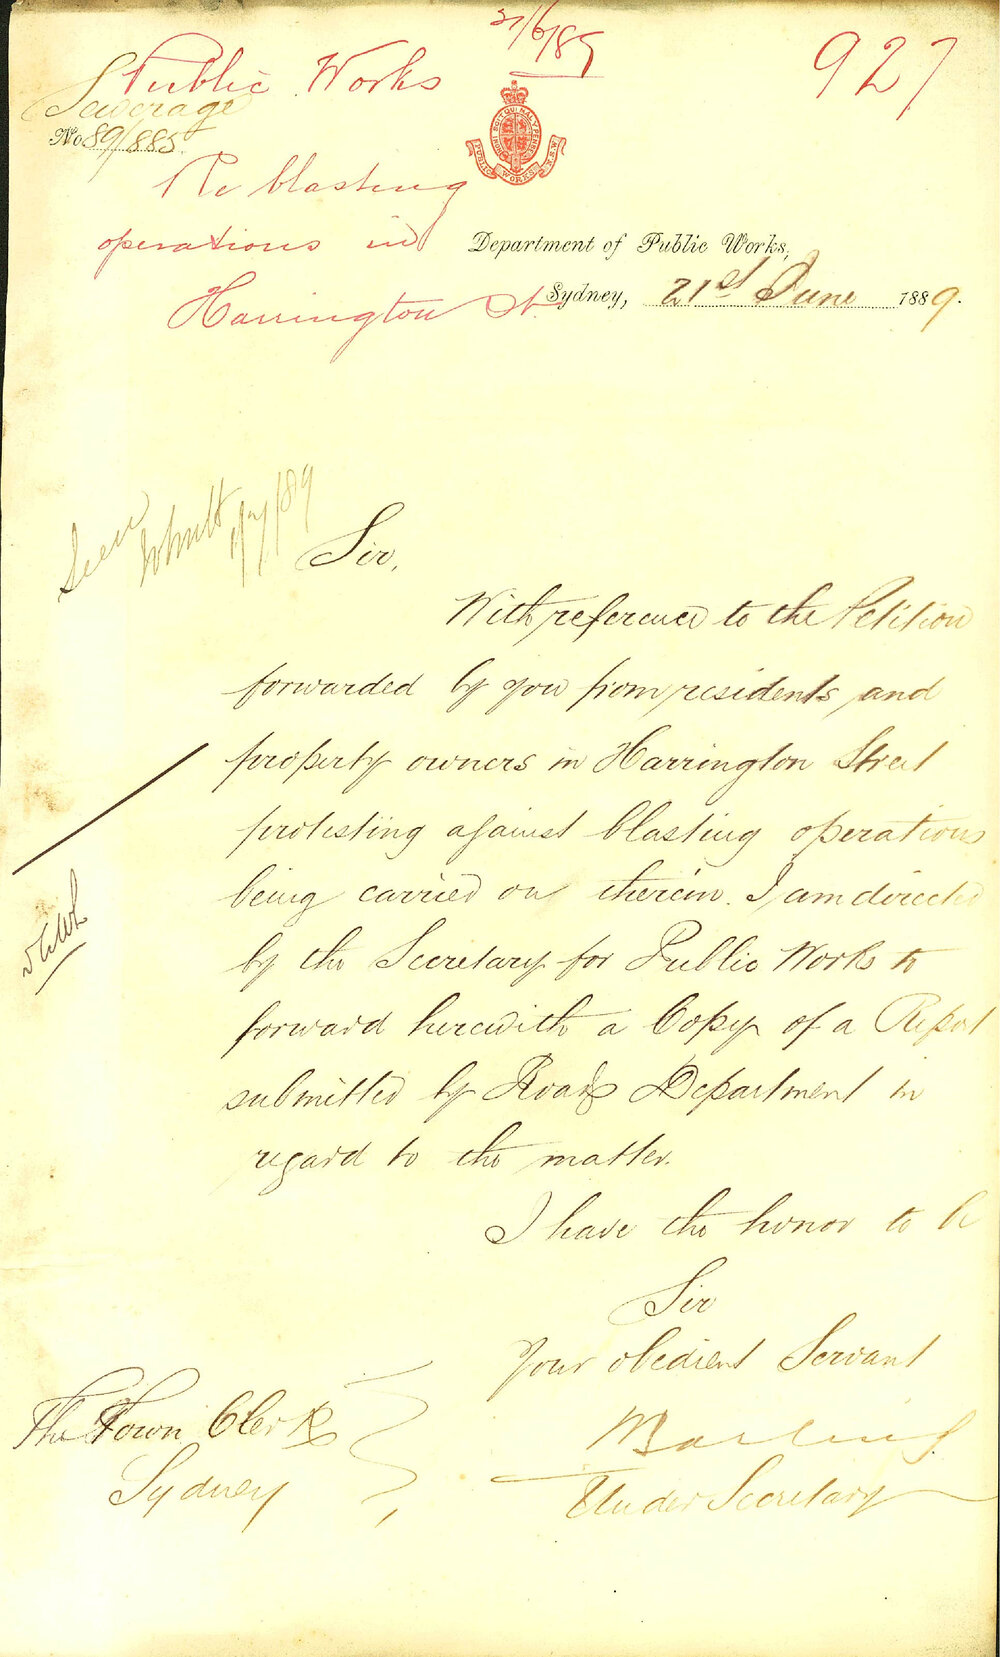 27/6/89
927
Public Works
Sewerage
No 89/885.
Re blasting
operations in
Harrington St.
PUBLIC WORKS N.S.W.
Department of Public Works,
Sydney, 21st June 1889.
Seen
/89
Sir,
With reference to the Petition
forwarded by you from residents and
property owners in Harrington Street
protesting against blasting operations
being carried on therein. I am directed
by the Secretary for Public Works to
forward herewith a Copy of a Report
submitted by Roads Department in
regard to the matter.
I have the honor to be
Sir
Your obedient Servant
Under Secretary
The Town Clerk
Sydney